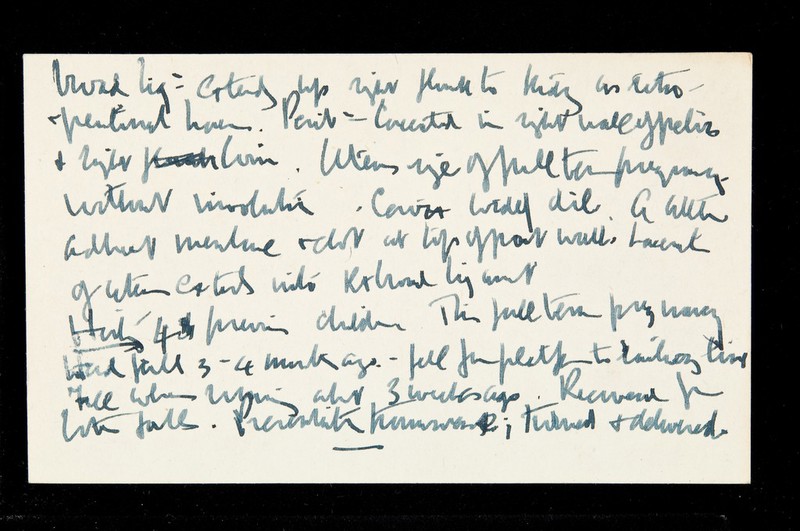 Broad lig = extends up right flank to kidney as retro-
-peritoneal haem. Perit = lacerated in right wall of pelvis
& right loin. Uterus size of full term pregnancy
without involution. Cervix widely dil. A little
adherent membrane & clot at top of post wall. Lacerat
of uterus extends into Rt broad ligament
History 4 previous children. This full term pregnancy
Had fall 3-4 months ago - fell from platform to railway line
Fell when running about 3 weeks ago. Recovered from
both falls. Presentation transverse; turned & delivered.